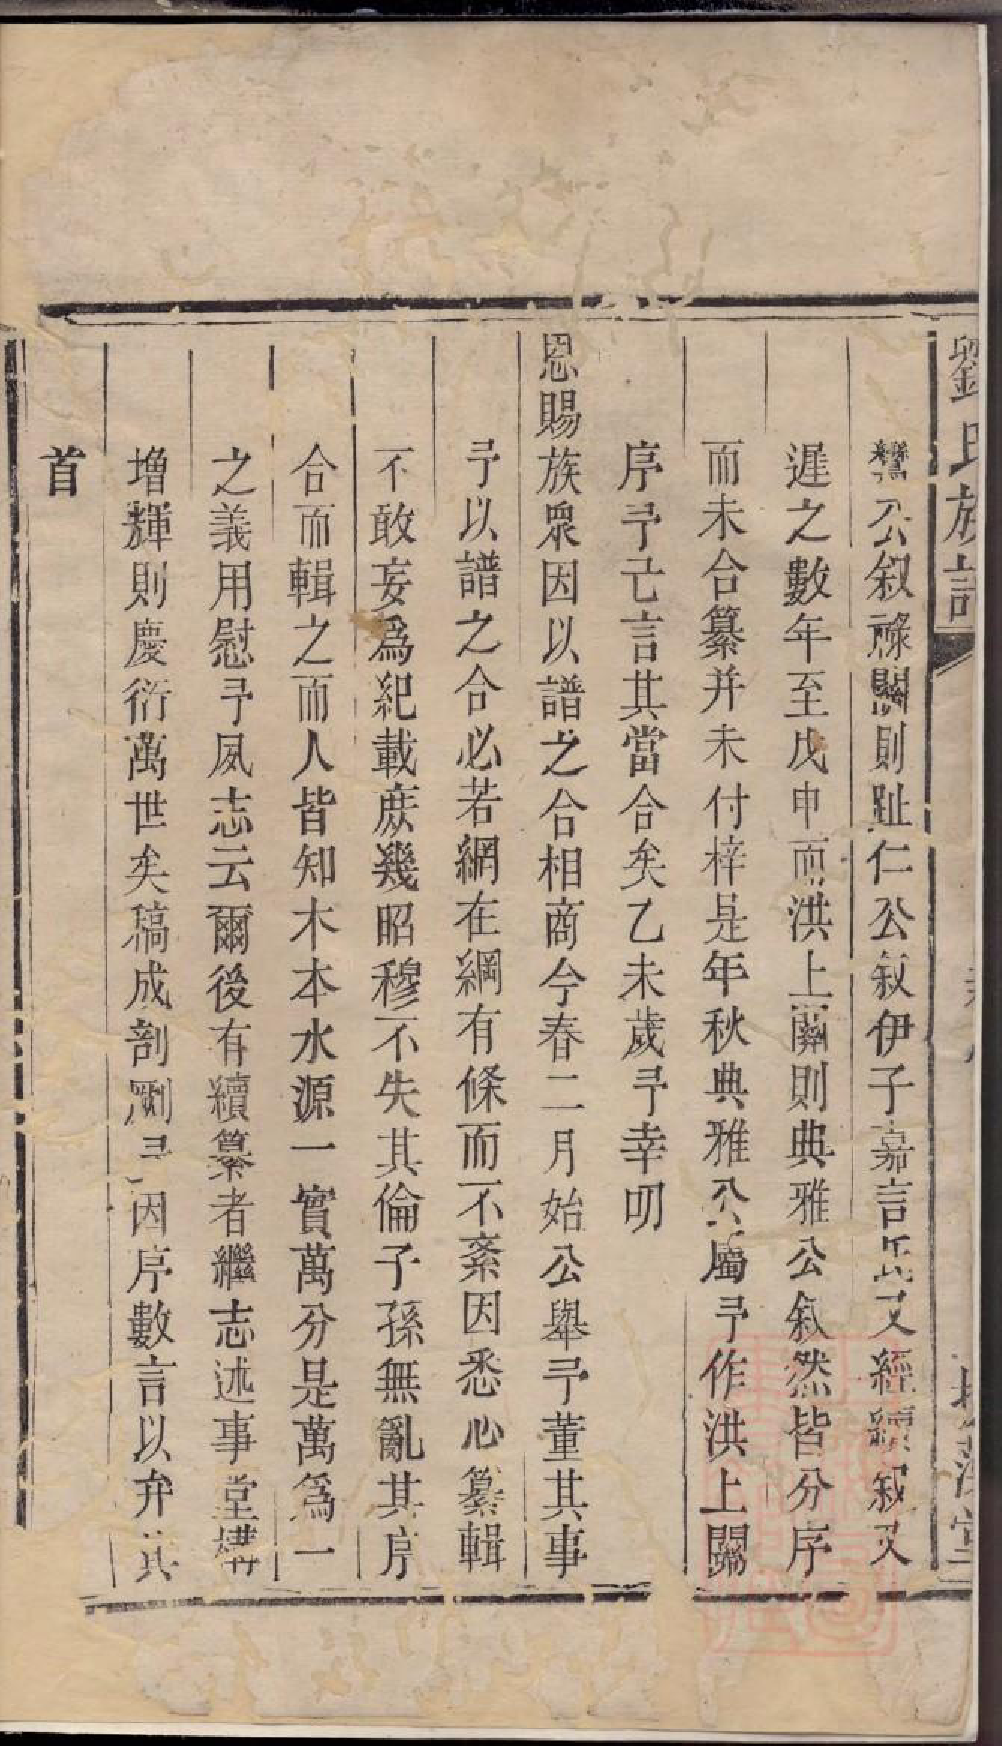 劉氏族譜
公叙祿關則趾仁公叙伊子嘉言氏又經續叙又
遲之數年至戊申而洪上關則典雅公叙然皆分序
而未合纂并未付梓是年秋典雅公屬予作洪上關
序予已言其當合矣乙未歲予幸叨
恩賜族眾因以譜之合相商今春二月始公舉予董其事
予以譜之合必若網在綱有條而不紊因悉心纂輯
不敢妄為紀載庻幾昭穆不失其倫子孫無亂其序
合而輯之而人皆知木本水源一實萬分是萬為一
之義用慰予夙志云爾後有續纂者繼志述事堂構
增輝則慶衍萬世矣稿成剖劂予因序數言以弁其
首